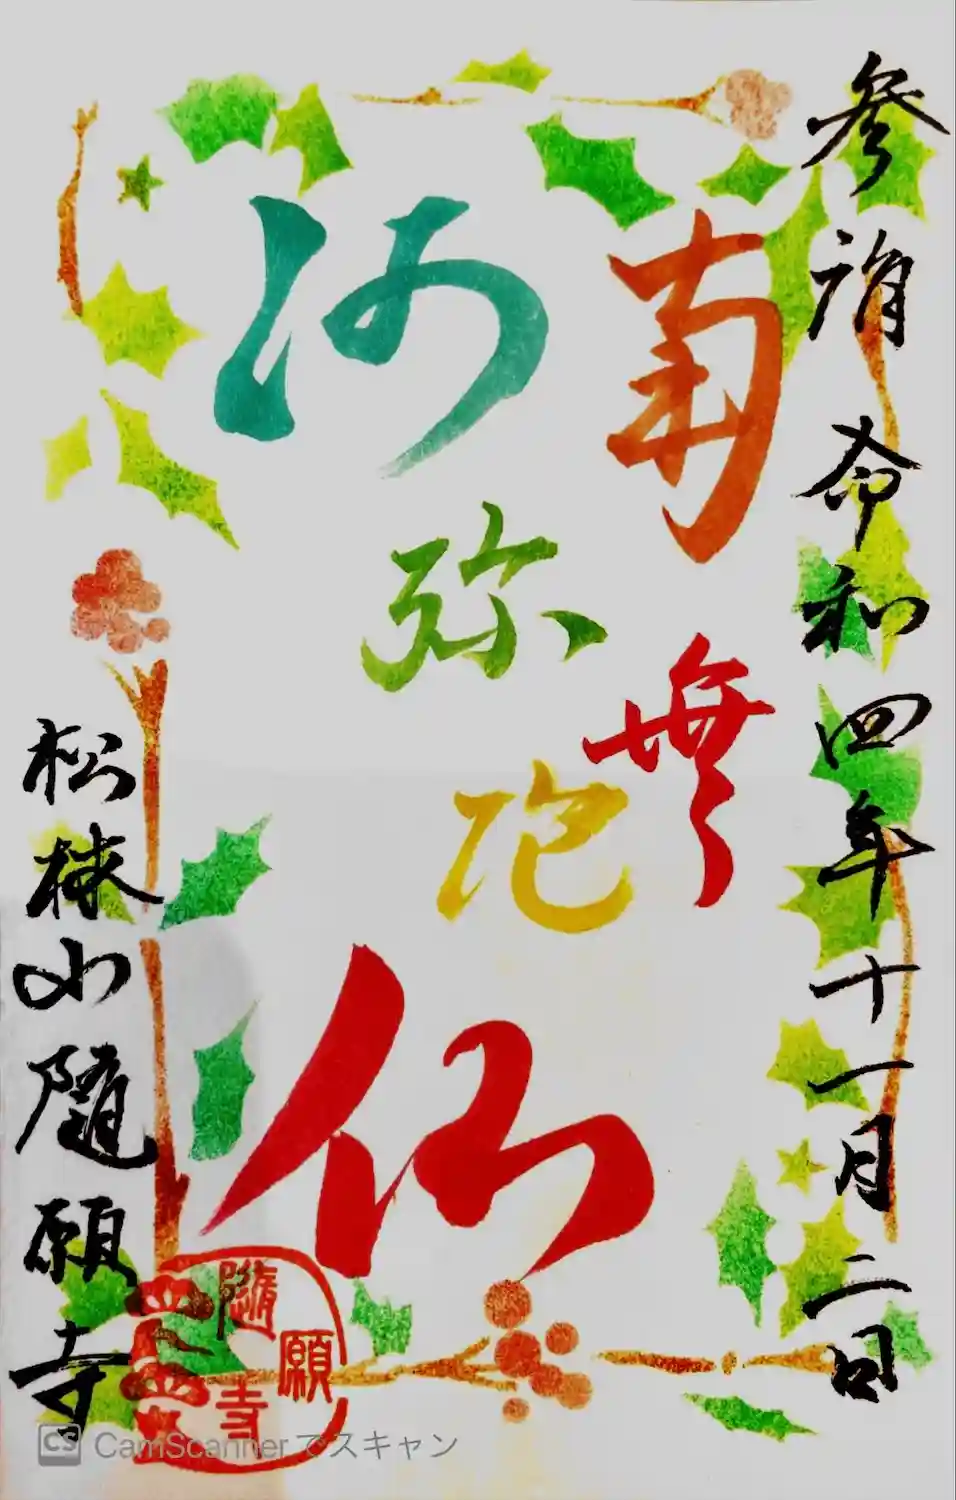 参詣 令和四年十一月二日
南無
阿弥陀
仏
松林山随願寺
随願寺
CS CamScannerでスキャン